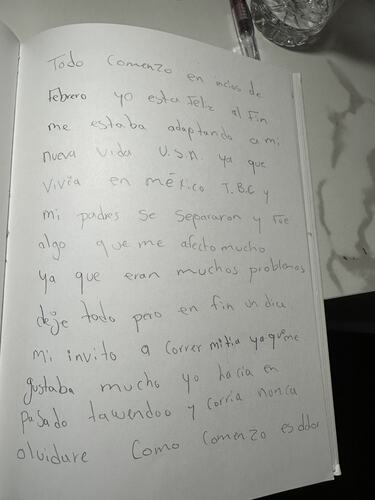 Todo Comenzo en inicios de
Febrero yo esta Feliz al Fin
me estaba adaptando a mi
nueva vida U.S.A. ya que
vivia en méxico T.B.C y
mi padres se separaron y Fue
algo que me afecto mucho
ya que eran muchos problemas
deje todo pero en fin un dia
mi invito a correr mi tia ya que me
gustaba mucho yo hacia en
pasado tawendoo y corria nunca
olvidare Como comenzo es